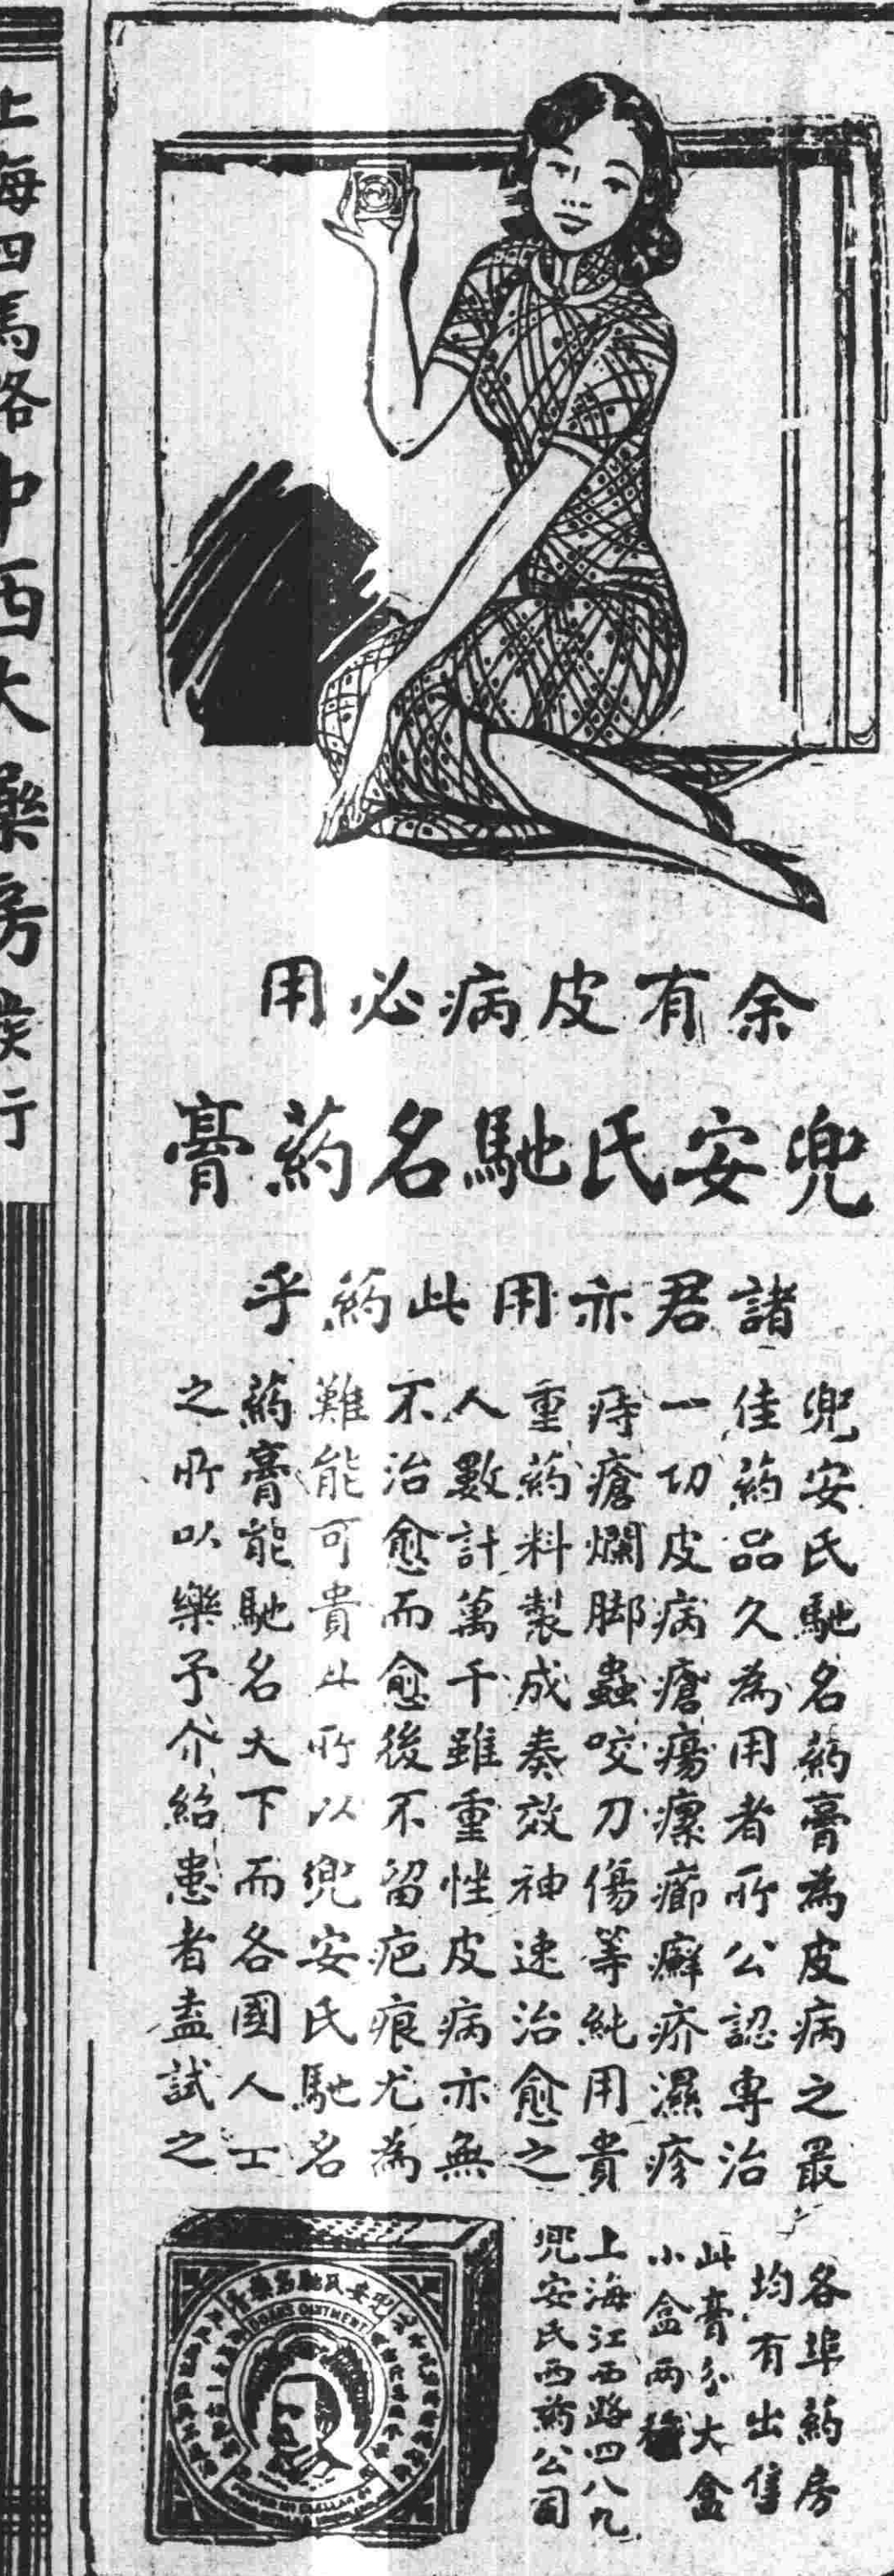 余有皮病必用
兜安氏馳名葯膏
諸君亦用此葯乎
兜安氏馳名葯膏為皮病之最
佳葯品久為用者所公認專治
一切皮病瘡瘍瘰癤癬疥濕疹
痔瘡爛脚蟲咬刀傷等純用貴
重葯料製成奏效神速治愈之
人數計萬千雖重性皮病亦無
不治愈而愈後不留疤痕尤為
難能可貴此所以兜安氏馳名
葯膏能馳名天下而各國人士
之所以樂予介紹患者盍試之
各埠葯房
均有出售
此膏分大盒
小盒兩種
上海江西路四八九
兜安氏西葯公司
DOAN'S OINTMENT
上海四馬路中西大藥房發行